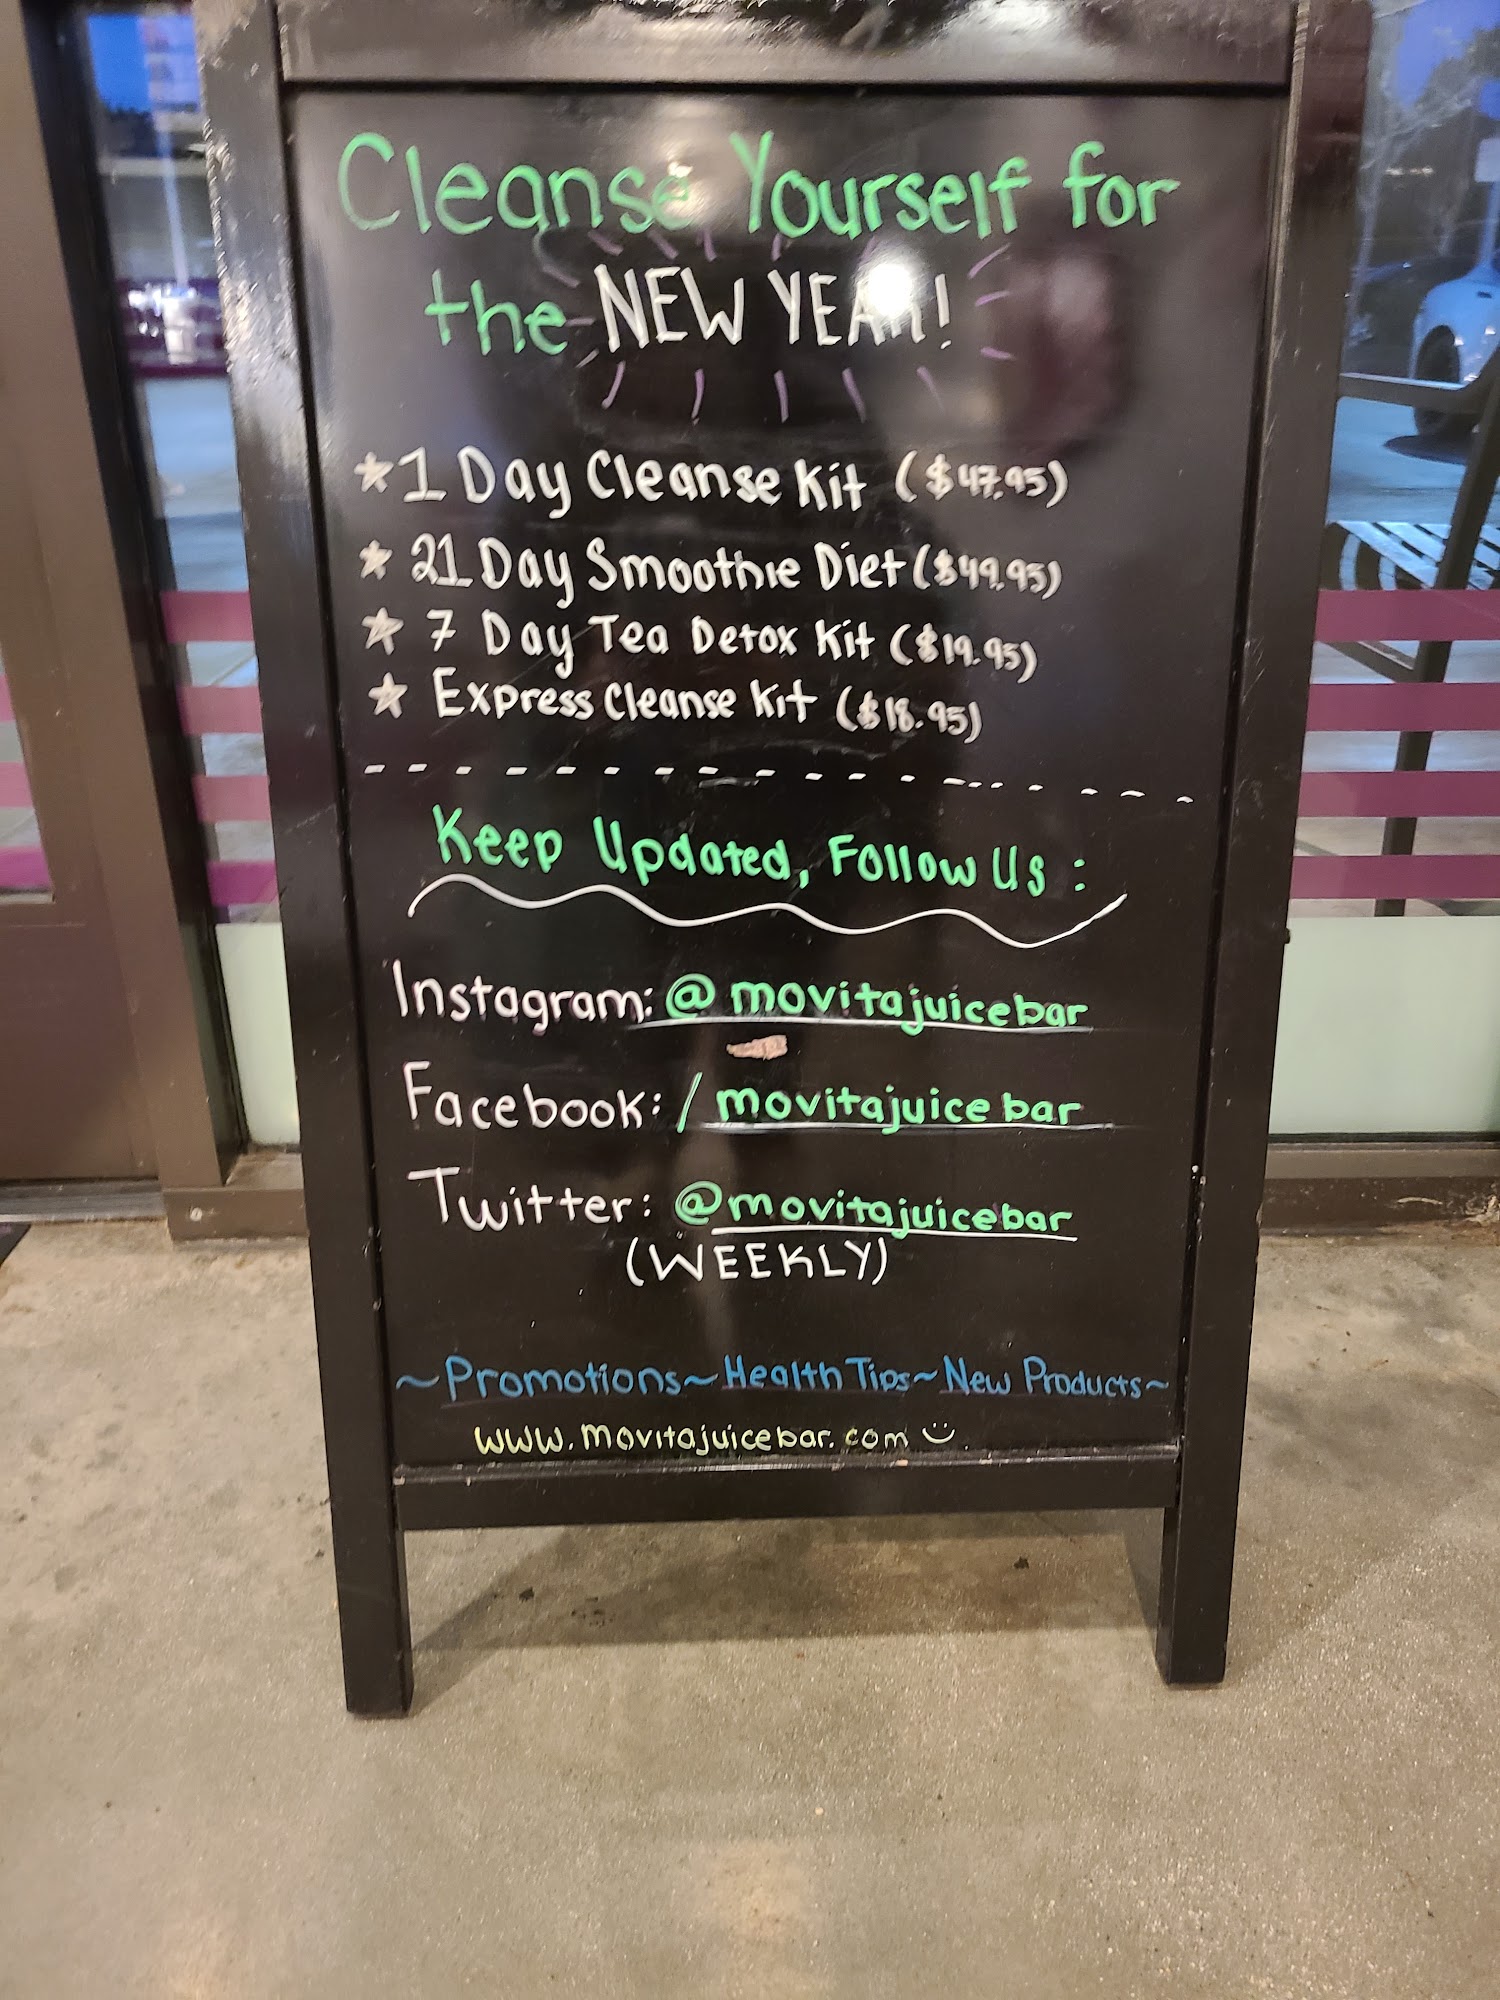 Cleanse Yourself for
the NEW YEAR!
1 Day Cleanse Kit ($47.95)
21 Day Smoothie Diet ($49.95)
7 Day Tea Detox Kit ($19.95)
Express Cleanse Kit ($18.95)
Keep Updated, Follow Us :
Instagram: @movitajuicebar
Facebook: /movitajuicebar
Twitter: @movitajuicebar
(WEEKLY)
~Promotions~Health Tips~New Products~
www.movitajuicebar.com